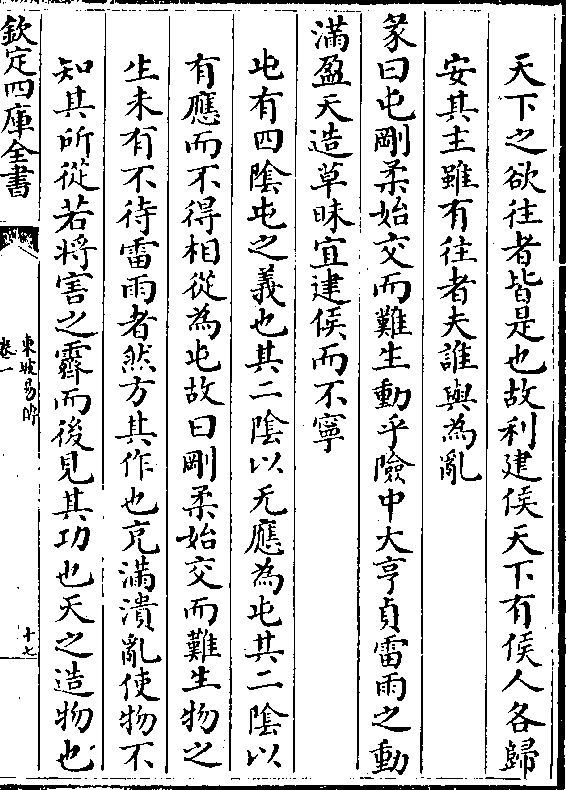 天下之欲往者皆是也故利建侯天下有侯人各歸
安其主雖有往者夫誰與為亂
彖曰屯剛柔始交而難生動乎險中大亨貞雷雨之動
滿盈天造草昧宜建侯而不寧
屯有四陰屯之義也其二陰以无應為屯其二陰以
有應而不得相從為屯故曰剛柔始交而難生物之
生未有不待雷雨者然方其作也充滿潰亂使物不
知其所從若將害之霽而後見其功也天之造物也
欽定四庫全書
東坡易傳
卷一
十七